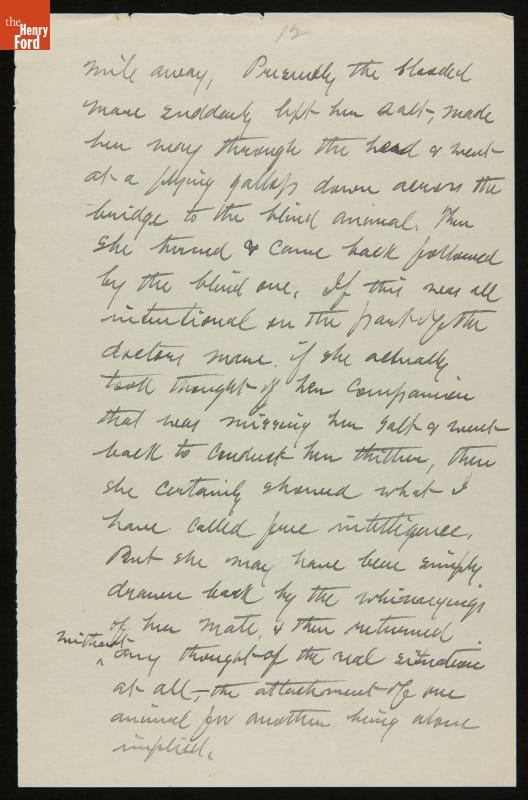 the
Henry
Ford
12
mile away, Presently the blooded
mare suddenly left her salt, made
her way through the herd & went
at a flying gallop down across the
bridge to the blind animal. Then
she turned & came back followed
by the blind one. If this was all
intentional on the part of the
doctors mare, if she actually
took thought of her companion
that was missing her salt & went
back to conduct her thither, then
she certainly showed what I
have called free intelligence.
But she may have been simply
drawn back by the whinnyings
of her mate, & then returned
without any thought of the real situation
at all,—the attachment of one
animal for another being alone
implied.